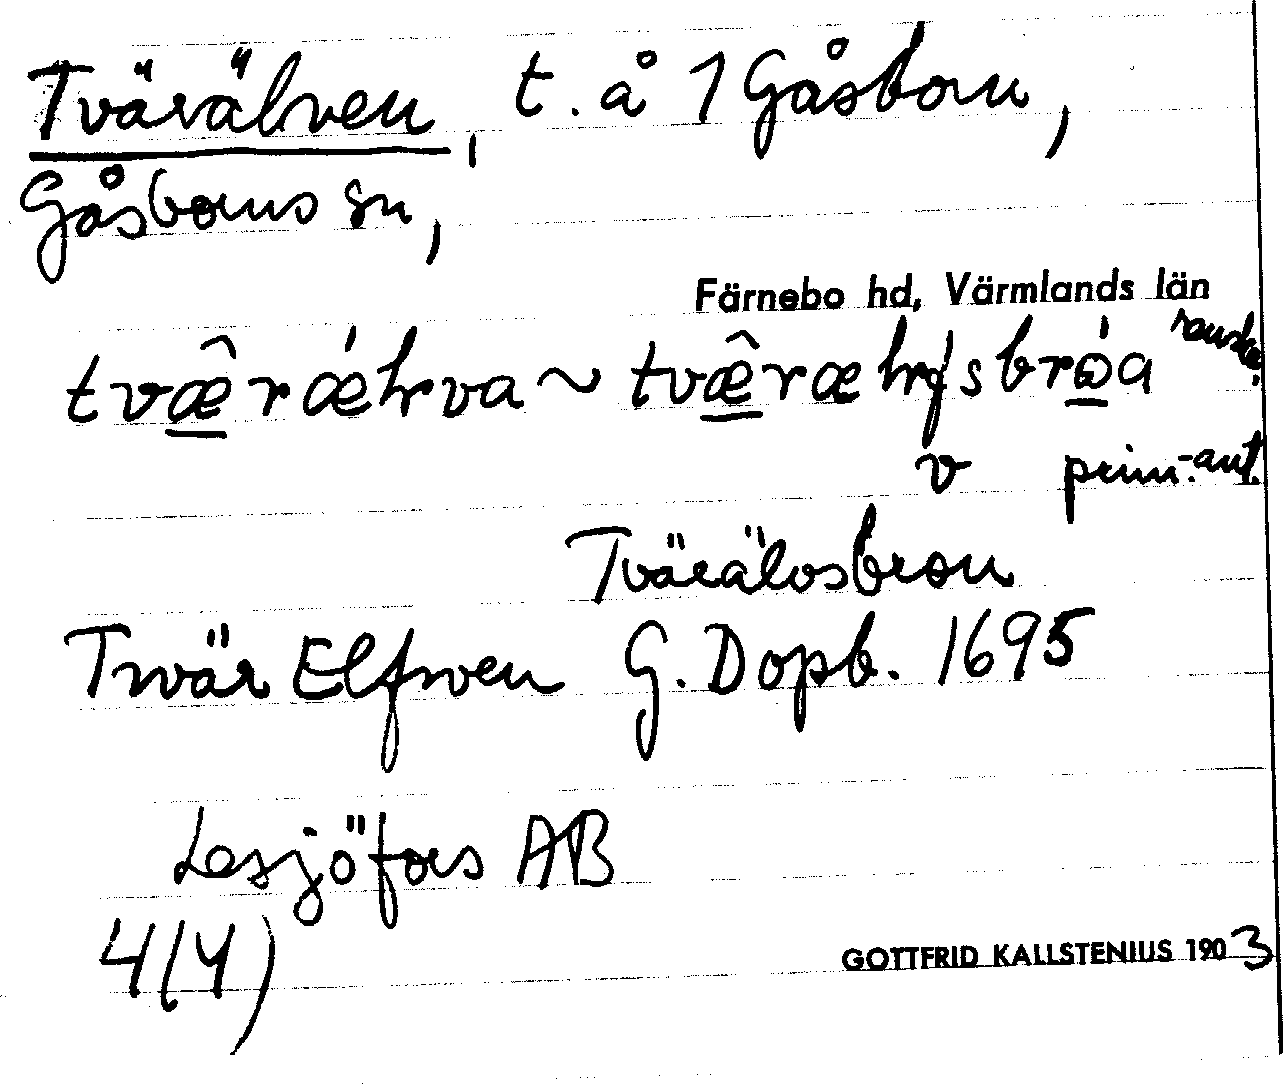 Tvärälven, t. å 1 Gåsborn,
Gåsborns sn,
Färnebo hd, Värmlands län
tvæ̂rǽlrva ~ tvæ̂rælrfsbrǫ́a
v prim.-ant.
Tvärälvsbron
Twär Elfwen G. Dopb. 1695
Lesjöfors AB
4(4)
GOTTFRID KALLSTENIUS 1903